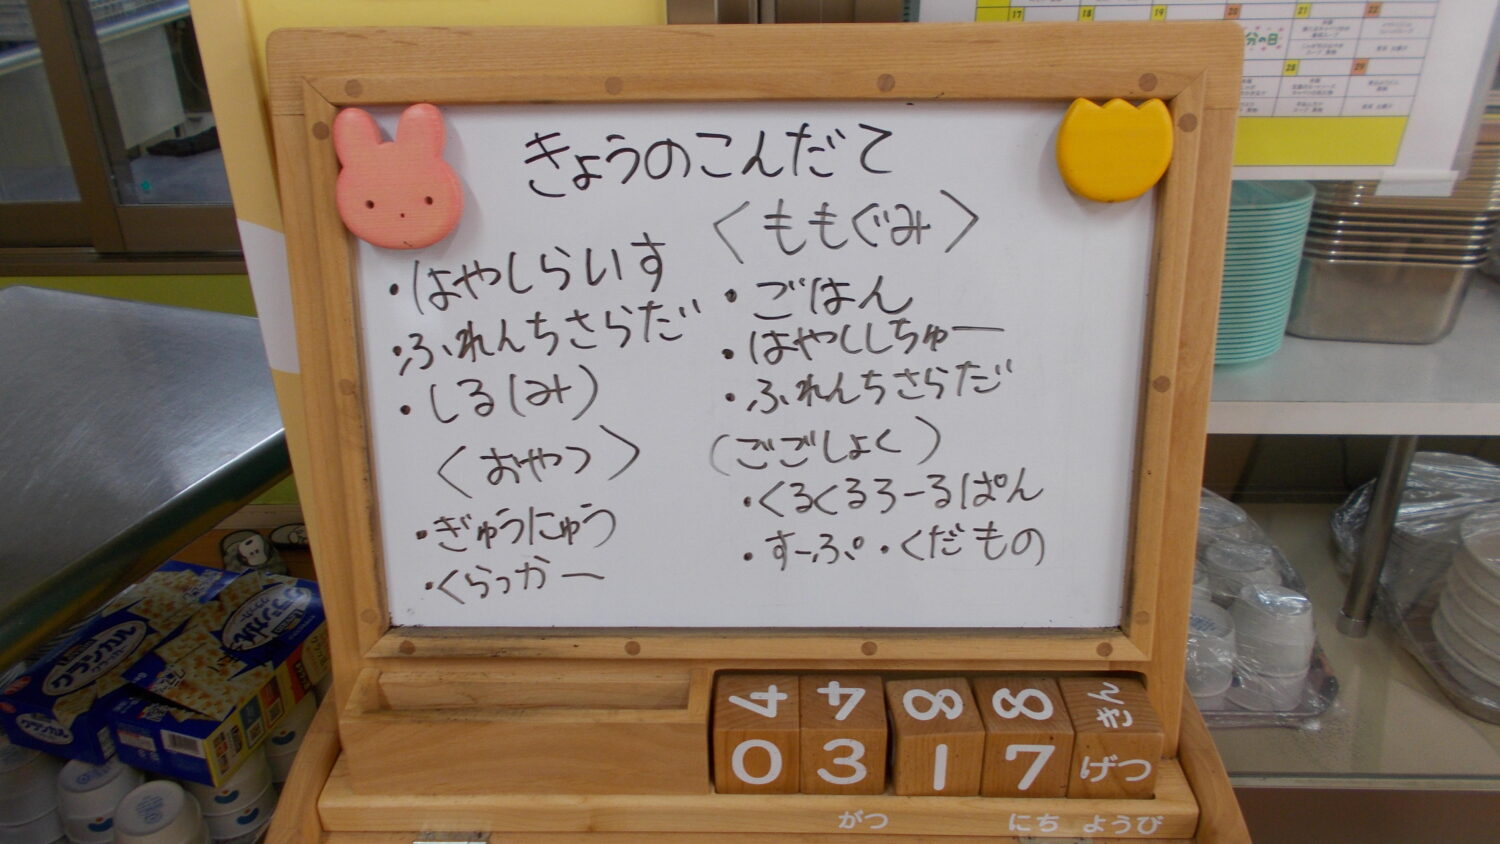 きょうのこんだて
・はやしらいす
・ふれんちさらだ
・しる(み)
〈おやつ〉
・ぎゅうにゅう
・くらっかー
〈ももぐみ〉
・ごはん
・はやししちゅー
・ふれんちさらだ
(ごごしょく)
・くるくるろーるぱん
・すーぷ・くだもの
4 4 8 8 きん
0 3 1 7 げつ
がつ にち ようび
17 18 19 20 21 22
28 29
クラッカー